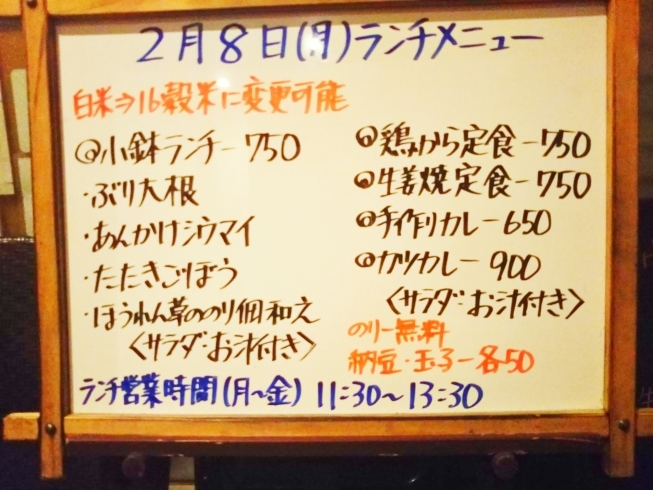 2月8日(月)ランチメニュー
白米⇒16穀米に変更可能
◎小鉢ランチー750
・ぶり大根
・あんかけシウマイ
・たたきごぼう
・ほうれん草ののり佃和え
〈サラダ・お汁付き〉
◎鶏から定食ー750
◎生姜焼定食ー750
◎手作りカレー650
◎カツカレー900
〈サラダ・お汁付き〉
のりー無料
納豆・玉子ー各50
ランチ営業時間(月~金) 11:30~13:30